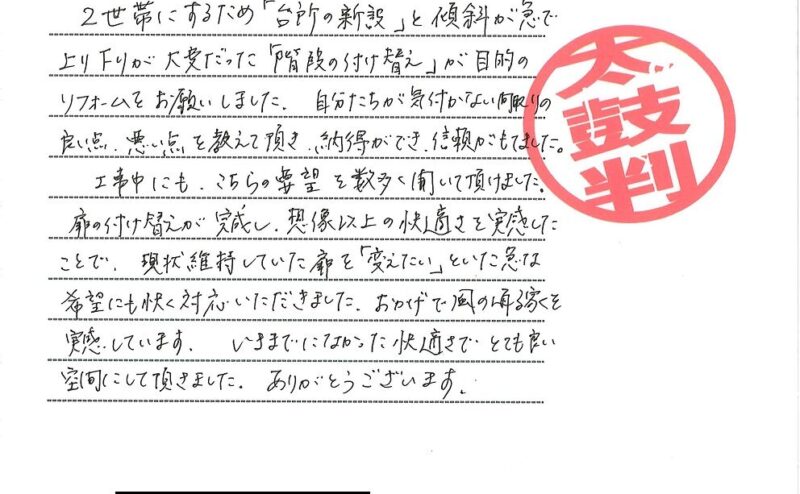 2世帯にするため「台所の新設」と傾斜が急で
上り下りが大変だった「階段の付け替え」が目的の
リフォームをお願いしました。自分たちが気付かない間取りの
良い点、悪い点を教えて頂き、納得ができ、信頼がもてました。
工事中にも、こちらの要望を数多く聞いて頂けました。
扉の付け替えが完成し、想像以上の快適さを実感した
ことで、現状維持していた扉を「変えたい」といった急な
希望にも快く対応いただきました。おかげで風の通る家を
実感しています。いままでになかった快適さで、とても良い
空間にして頂きました。ありがとうございます。
太鼓判